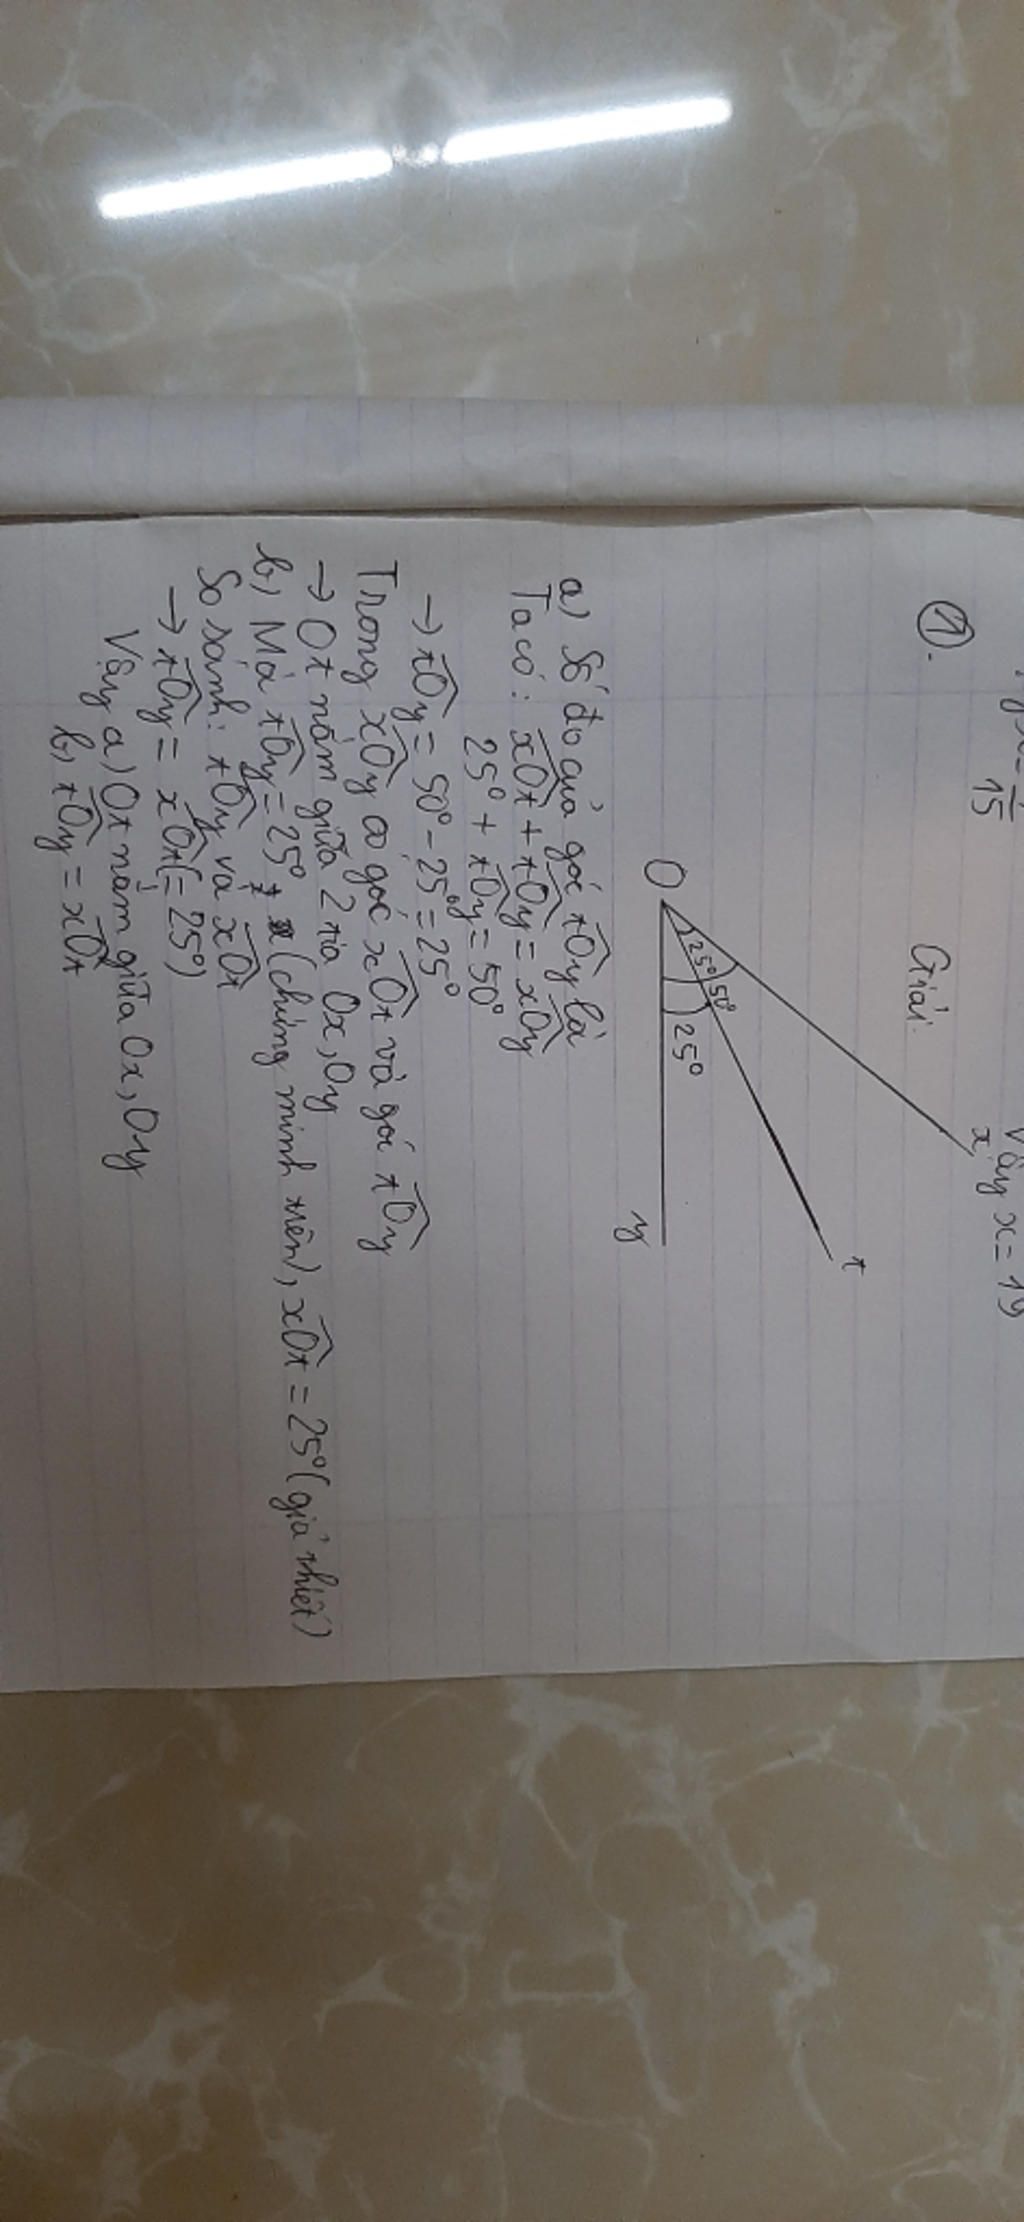 15
Vậy x = 19
①.
Giải
x
t
O
25° 50°
25°
y
a) Số đo của góc tOy là
Ta có: xOt + tOy = xOy
25° + tOy = 50°
→ tOy = 50° - 25° = 25°
Trong xOy có góc xOt và góc tOy
→ Ot nằm giữa 2 tia Ox, Oy
b) Mà tOy = 25° (chứng minh trên), xOt = 25° (giả thiết)
So sánh: tOy và xOt
→ tOy = xOt (= 25°)
Vậy a) Ot nằm giữa Ox, Oy
b) tOy = xOt